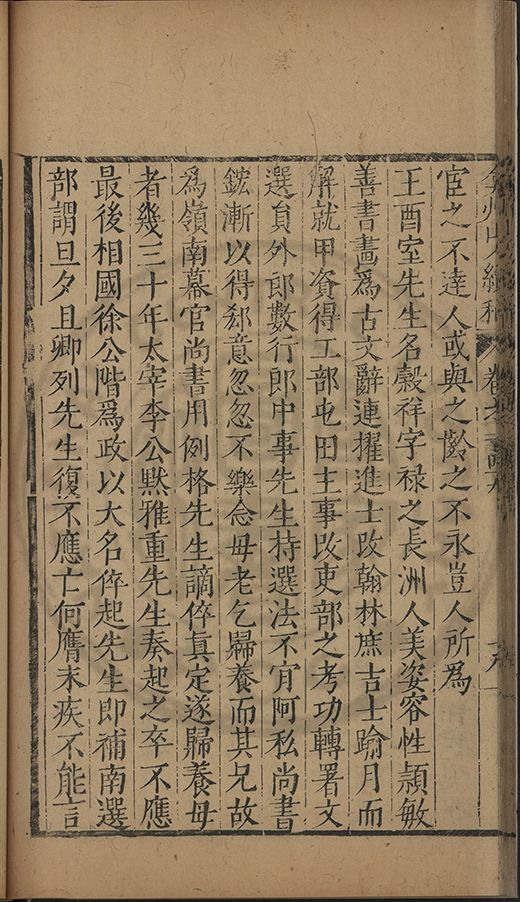 弇州山人續稿 卷
宦之不達人或與之齡之不永豈人所爲
王酉室先生名穀祥字祿之長洲人美姿容性頴敏
善書畫爲古文辭連擢進士改翰林庶吉士踰月而
解就甲資得工部屯田主事改吏部之考功轉署文
選員外郎數行郎中事先生持選法不肎阿私尚書
鋐漸以得郄意忽忽不樂念毋老乞歸養而其兄故
爲嶺南幕官尚書用例格先生謫倅眞定遂歸養毋
者幾三十年太宰李公黙雅重先生奏起之卒不應
最後相國徐公階爲政以大名倅起先生即補南選
部謂旦夕且卿列先生復不應亡何膺末疾不能言